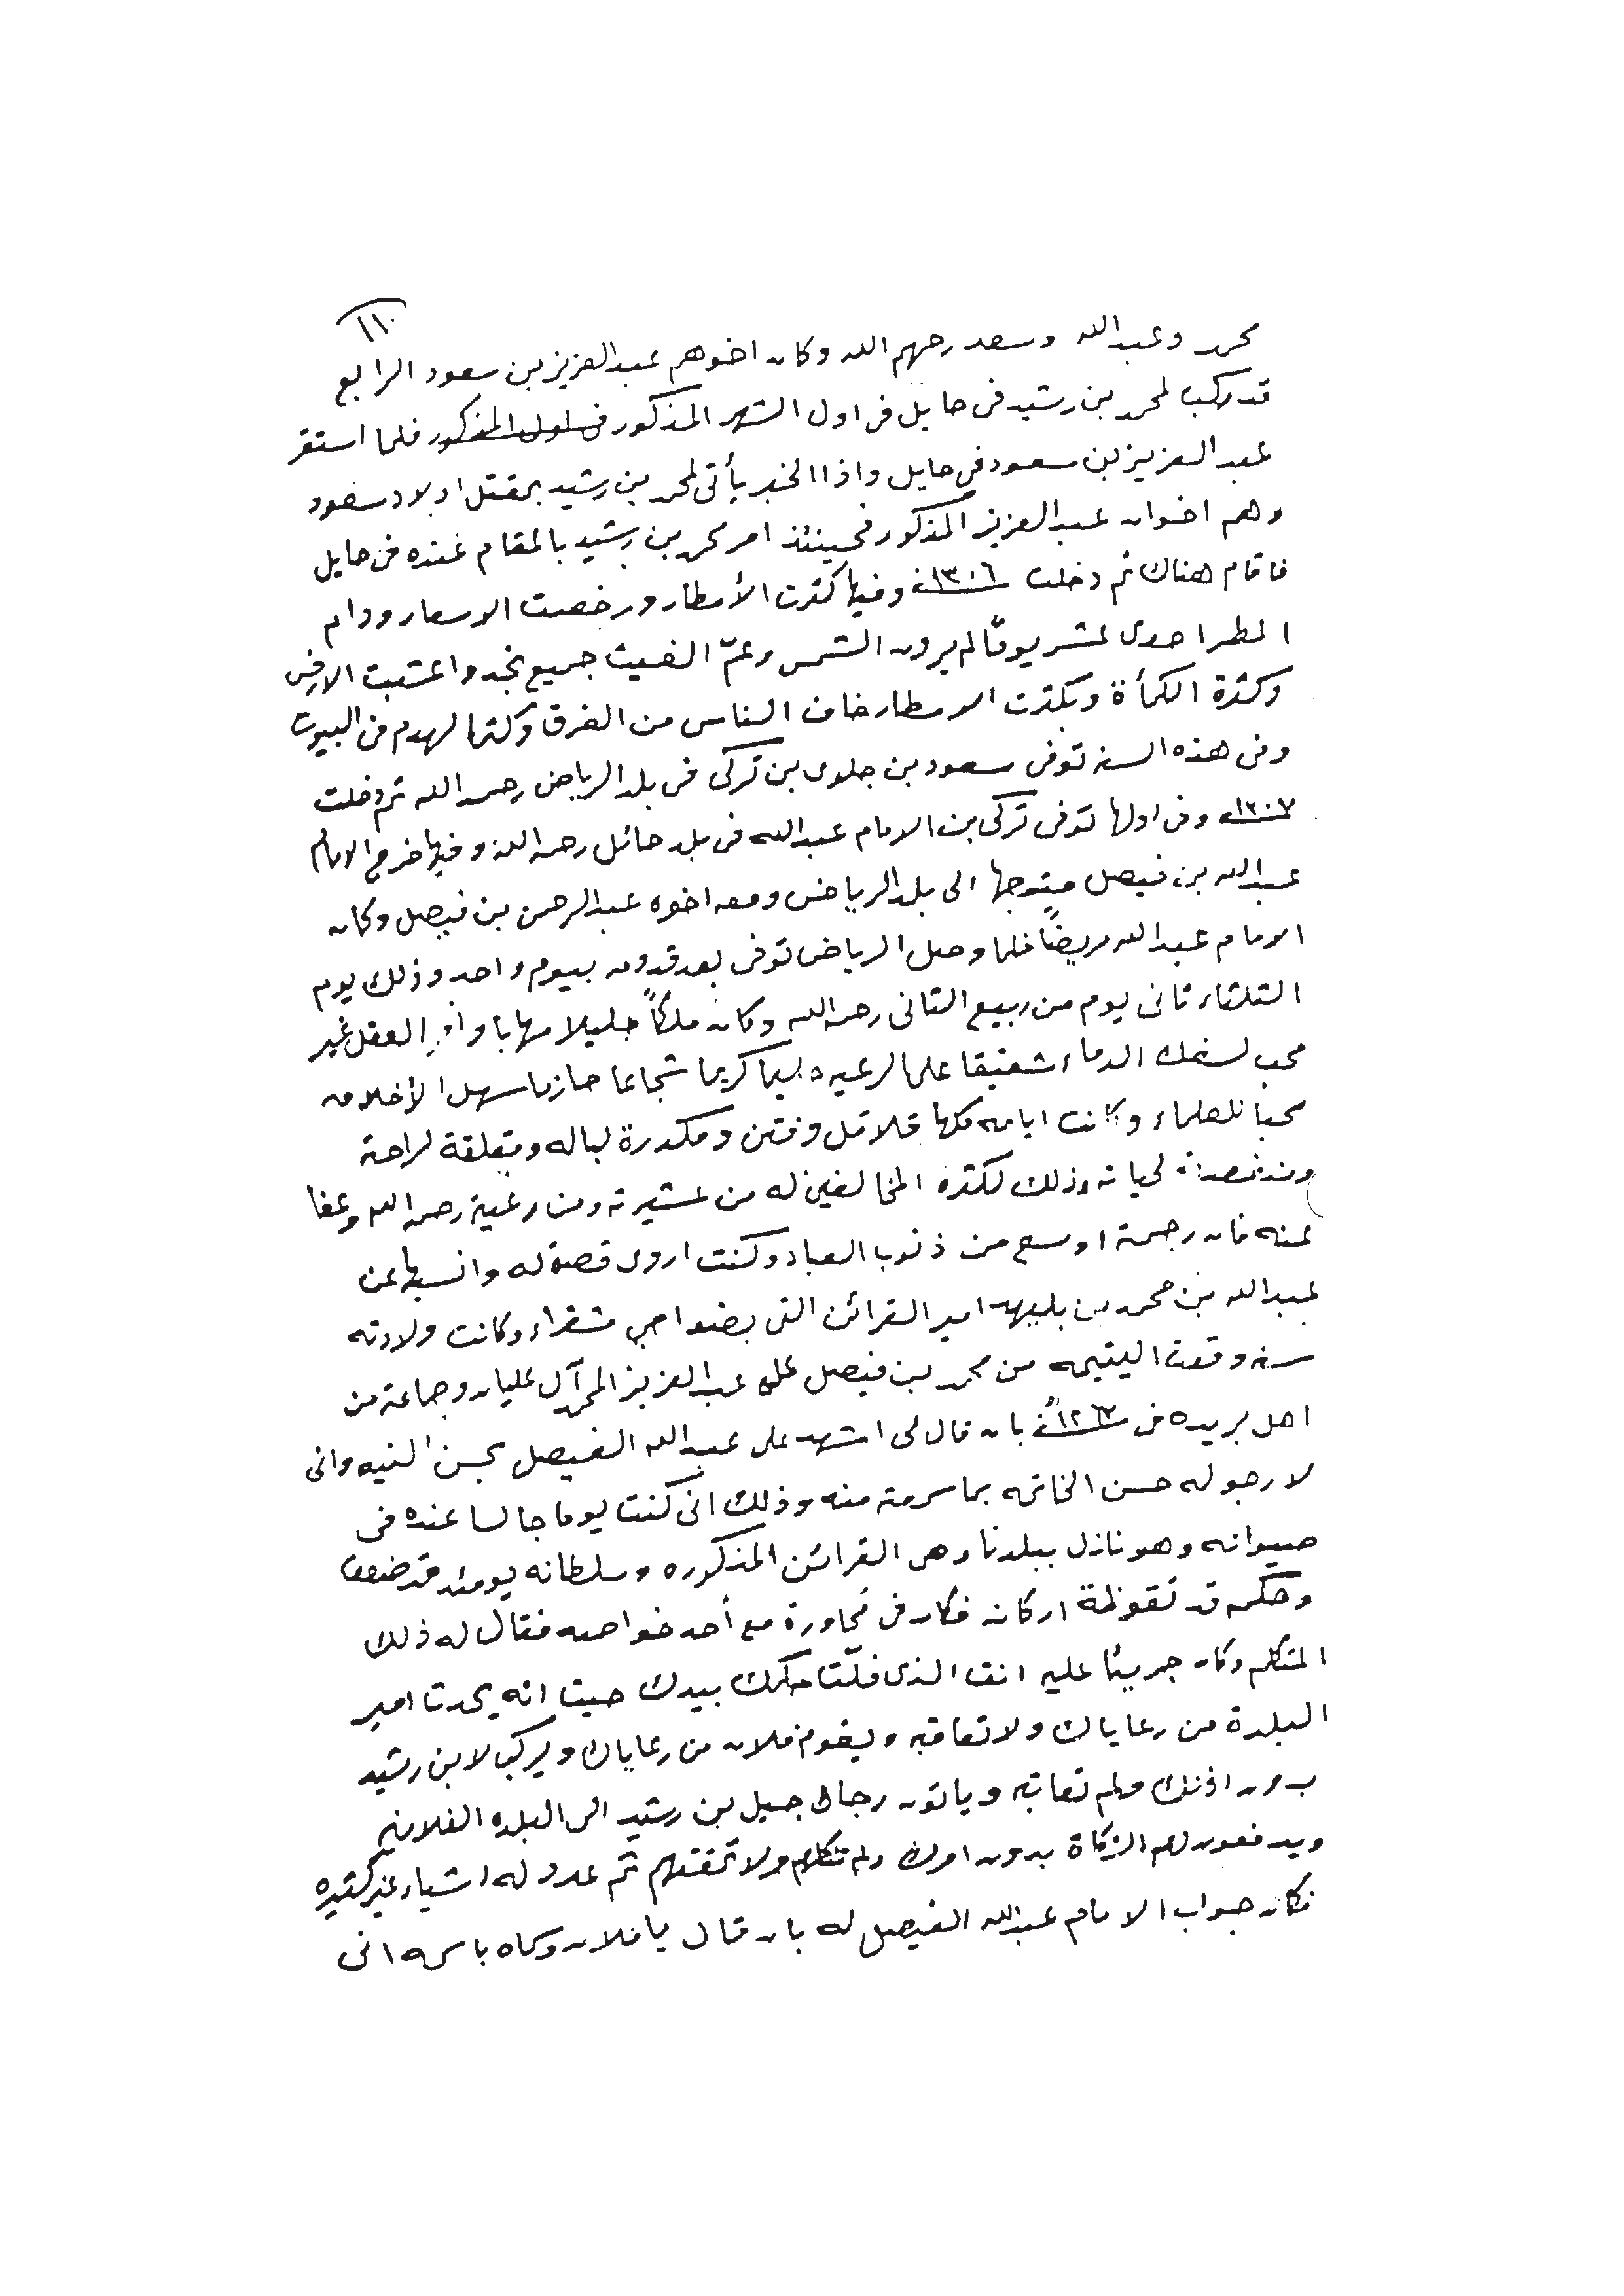 ١١٠
محمد وعبدالله وسعد رحمهم الله وكان اخوهم عبدالعزيز بن سعود الرابع
قد ركب لمحمد بن رشيد في حايل في اول الشهر المذكور في اول المذكور فلما استقر
عبد العزيز بن سعود في حايل واذا الخبر يأتي لمحمد بن رشيد بمقتل اولاد سعود
وهم اخوان عبد العزيز المذكور فحينئذ امر محمد بن رشيد بالمقام عنده في حايل
فاقام هناك ثم دخلت سنة ١٣٠٦ وفيها كثرت الأمطار ورخصت الاسعار ودام
المطر احدى عشر يومًا لم يرون الشمس وعمّ الغيث جميع نجد واعشبت الارض
وكثرة الكمأة وبكثرت الامطار خاف الناس من الغرق وكثر الهدم في البيوت
وفي هذه السنه توفي سعود بن جلوي بن تركي في بلد الرياض رحمه الله ثم دخلت
سنة ١٣٠٧ وفي اولها توفي تركي بن الامام عبدالله في بلد حائل رحمه الله وفيها خرج الامام
عبدالله بن فيصل متوجها الى بلد الرياض ومعه اخوه عبدالرحمن بن فيصل وكان
الامام عبدالله مريضًا فلما وصل الرياض توفي بعد قدومه بيوم واحد وذلك يوم
الثلثاء ثاني يوم من ربيع الثاني رحمه الله وكان ملكًا جليلا مهابا وافر العقل غير
محب لسفك الدماء شفيقا على الرعيه حليما كريما شجاعا حازما سهل الأخلاق
محبا للعلماء وكانت ايامه كلها قلاقل وفتن ومكدرة لباله ومقلقة لراحته
ومنغصة لحياته وذلك لكثرة المخالفين له من عشيرته ومن رعيته رحمه الله وعفا
عنه فان رحمته اوسع من ذنوب العباد وكنت اروي قصة له وانسبها عن
عبدالله بن محمد بن بليهد امير القرائن التي بضواحي شقراء وكانت ولادته
سنة وقعت اليتيمه من محمد بن فيصل على عبدالعزيز المحمد آل عليان وجماعة من
اهل بريده في سنة ١٢٦٣ بان قال لي اشهد على عبدالله الفيصل بحسن النيه واني
لارجو له حسن الخاتمه بما سمعته منه وذلك اني كنت يوما جالسا عنده في
صيوانه وهو نازل ببلدنا وهي القرائن المذكوره وسلطانه يومئذ قد ضعف
وحكمه قد تقوظة اركانه فكان في مُحاورة مع أحد خواصه فقال له ذلك
المتكلم وكان جريئا عليه انت الذي فلّتا حكمك بيدك حيث انه يحدث امير
البلدة من رعاياك ولا تعاقبه ويقوم فلان من رعاياك ويركب لابن رشيد
بدون اذنك ولم تعاتبه وياتون رجال جبيل بن رشيد الى البلده الفلانيه
ويدفعون لهم الزكاة بدون امرك ولم تتكلم ولا تمقتهم ثم عدد له اشياء غير كثيره
فكان جواب الامام عبدالله الفيصل له بان قال يا فلان وسماه باسمه اني